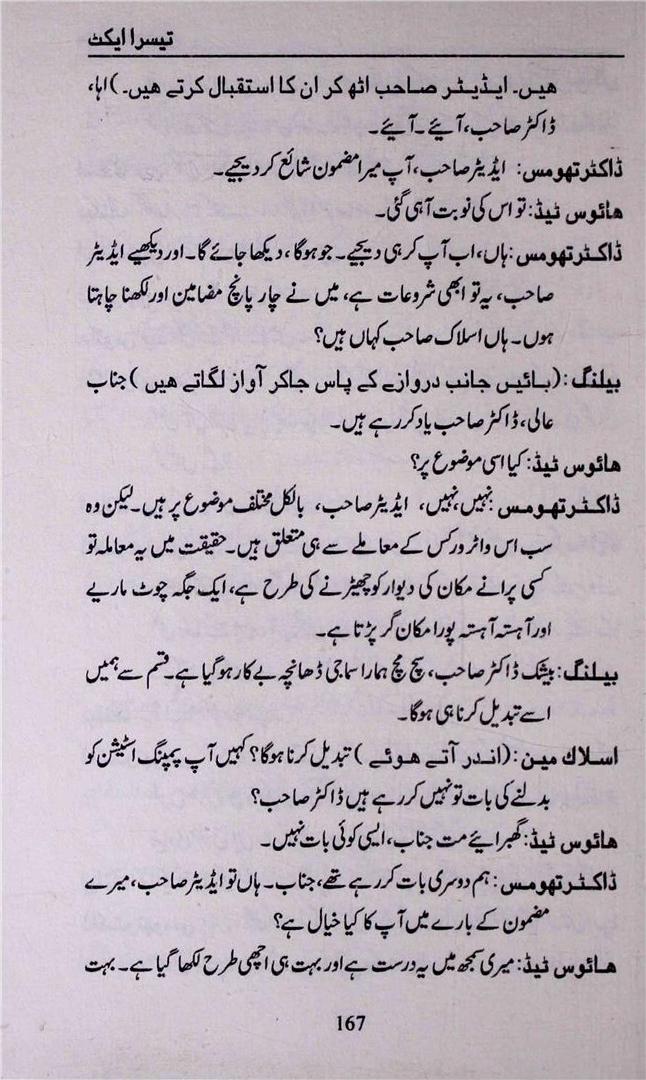 تیسرا ایکٹ
ھیں۔ ایڈیٹر صاحب اٹھ کر ان کا استقبال کرتے ھیں۔) اہا،
ڈاکٹر صاحب، آیئے۔ آیئے۔
ڈاکٹر تھومس: ایڈیٹر صاحب، آپ میرا مضمون شائع کر دیجیے۔
ھائوس ٹیڈ: تو اس کی نوبت آہی گئی۔
ڈاکٹر تھومس: ہاں، اب آپ کر ہی دیجیے۔ جو ہوگا، دیکھا جائے گا۔ اور دیکھیے ایڈیٹر
صاحب، یہ تو ابھی شروعات ہے، میں نے چار پانچ مضامین اور لکھنا چاہتا
ہوں۔ ہاں اسلاک صاحب کہاں ہیں؟
بیلنگ: (بائیں جانب دروازے کے پاس جاکر آواز لگاتے ھیں) جناب
عالی، ڈاکٹر صاحب یاد کر رہے ہیں۔
ھائوس ٹیڈ: کیا اسی موضوع پر؟
ڈاکٹر تھومس: نہیں، نہیں، ایڈیٹر صاحب، بالکل مختلف موضوع پر ہیں۔ لیکن وہ
سب اس واٹر ورکس کے معاملے سے ہی متعلق ہیں۔ حقیقت میں یہ معاملہ تو
کسی پرانے مکان کی دیوار کو چھیڑنے کی طرح ہے، ایک جگہ چوٹ ماریے
اور آہستہ آہستہ پورا مکان گر پڑتا ہے۔
بیلنگ: بیشک ڈاکٹر صاحب، سچ مچ ہمارا سماجی ڈھانچہ بے کار ہو گیا ہے۔ قسم سے ہمیں
اسے تبدیل کرنا ہی ہوگا۔
اسلاك مین: (اندر آتے ھوئے) تبدیل کرنا ہوگا؟ کہیں آپ پمپنگ اسٹیشن کو
بدلنے کی بات تو نہیں کر رہے ہیں ڈاکٹر صاحب؟
ھائوس ٹیڈ: گھبرایئے مت جناب، ایسی کوئی بات نہیں۔
ڈاکٹر تھومس: ہم دوسری بات کر رہے تھے، جناب۔ ہاں تو ایڈیٹر صاحب، میرے
مضمون کے بارے میں آپ کا کیا خیال ہے؟
ھائوس ٹیڈ: میری سمجھ میں یہ درست ہے اور بہت ہی اچھی طرح لکھا گیا ہے۔ بہت
167